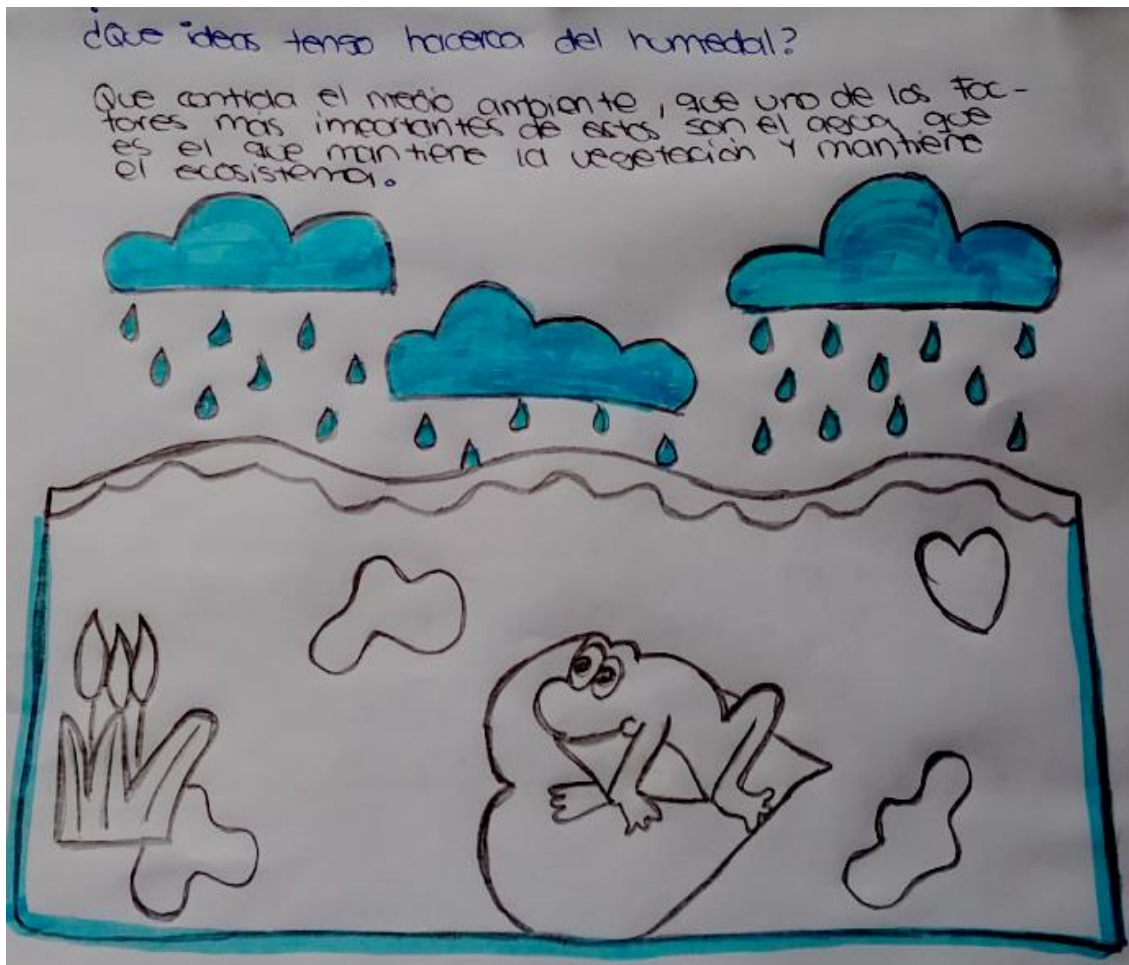 ¿Que ideas tengo hacerca del humedal?
Que controla el medio ambiente, que uno de los fac-
tores más importantes de estos son el agua que
es el que mantiene la vegetación y mantiene
el ecosistema.